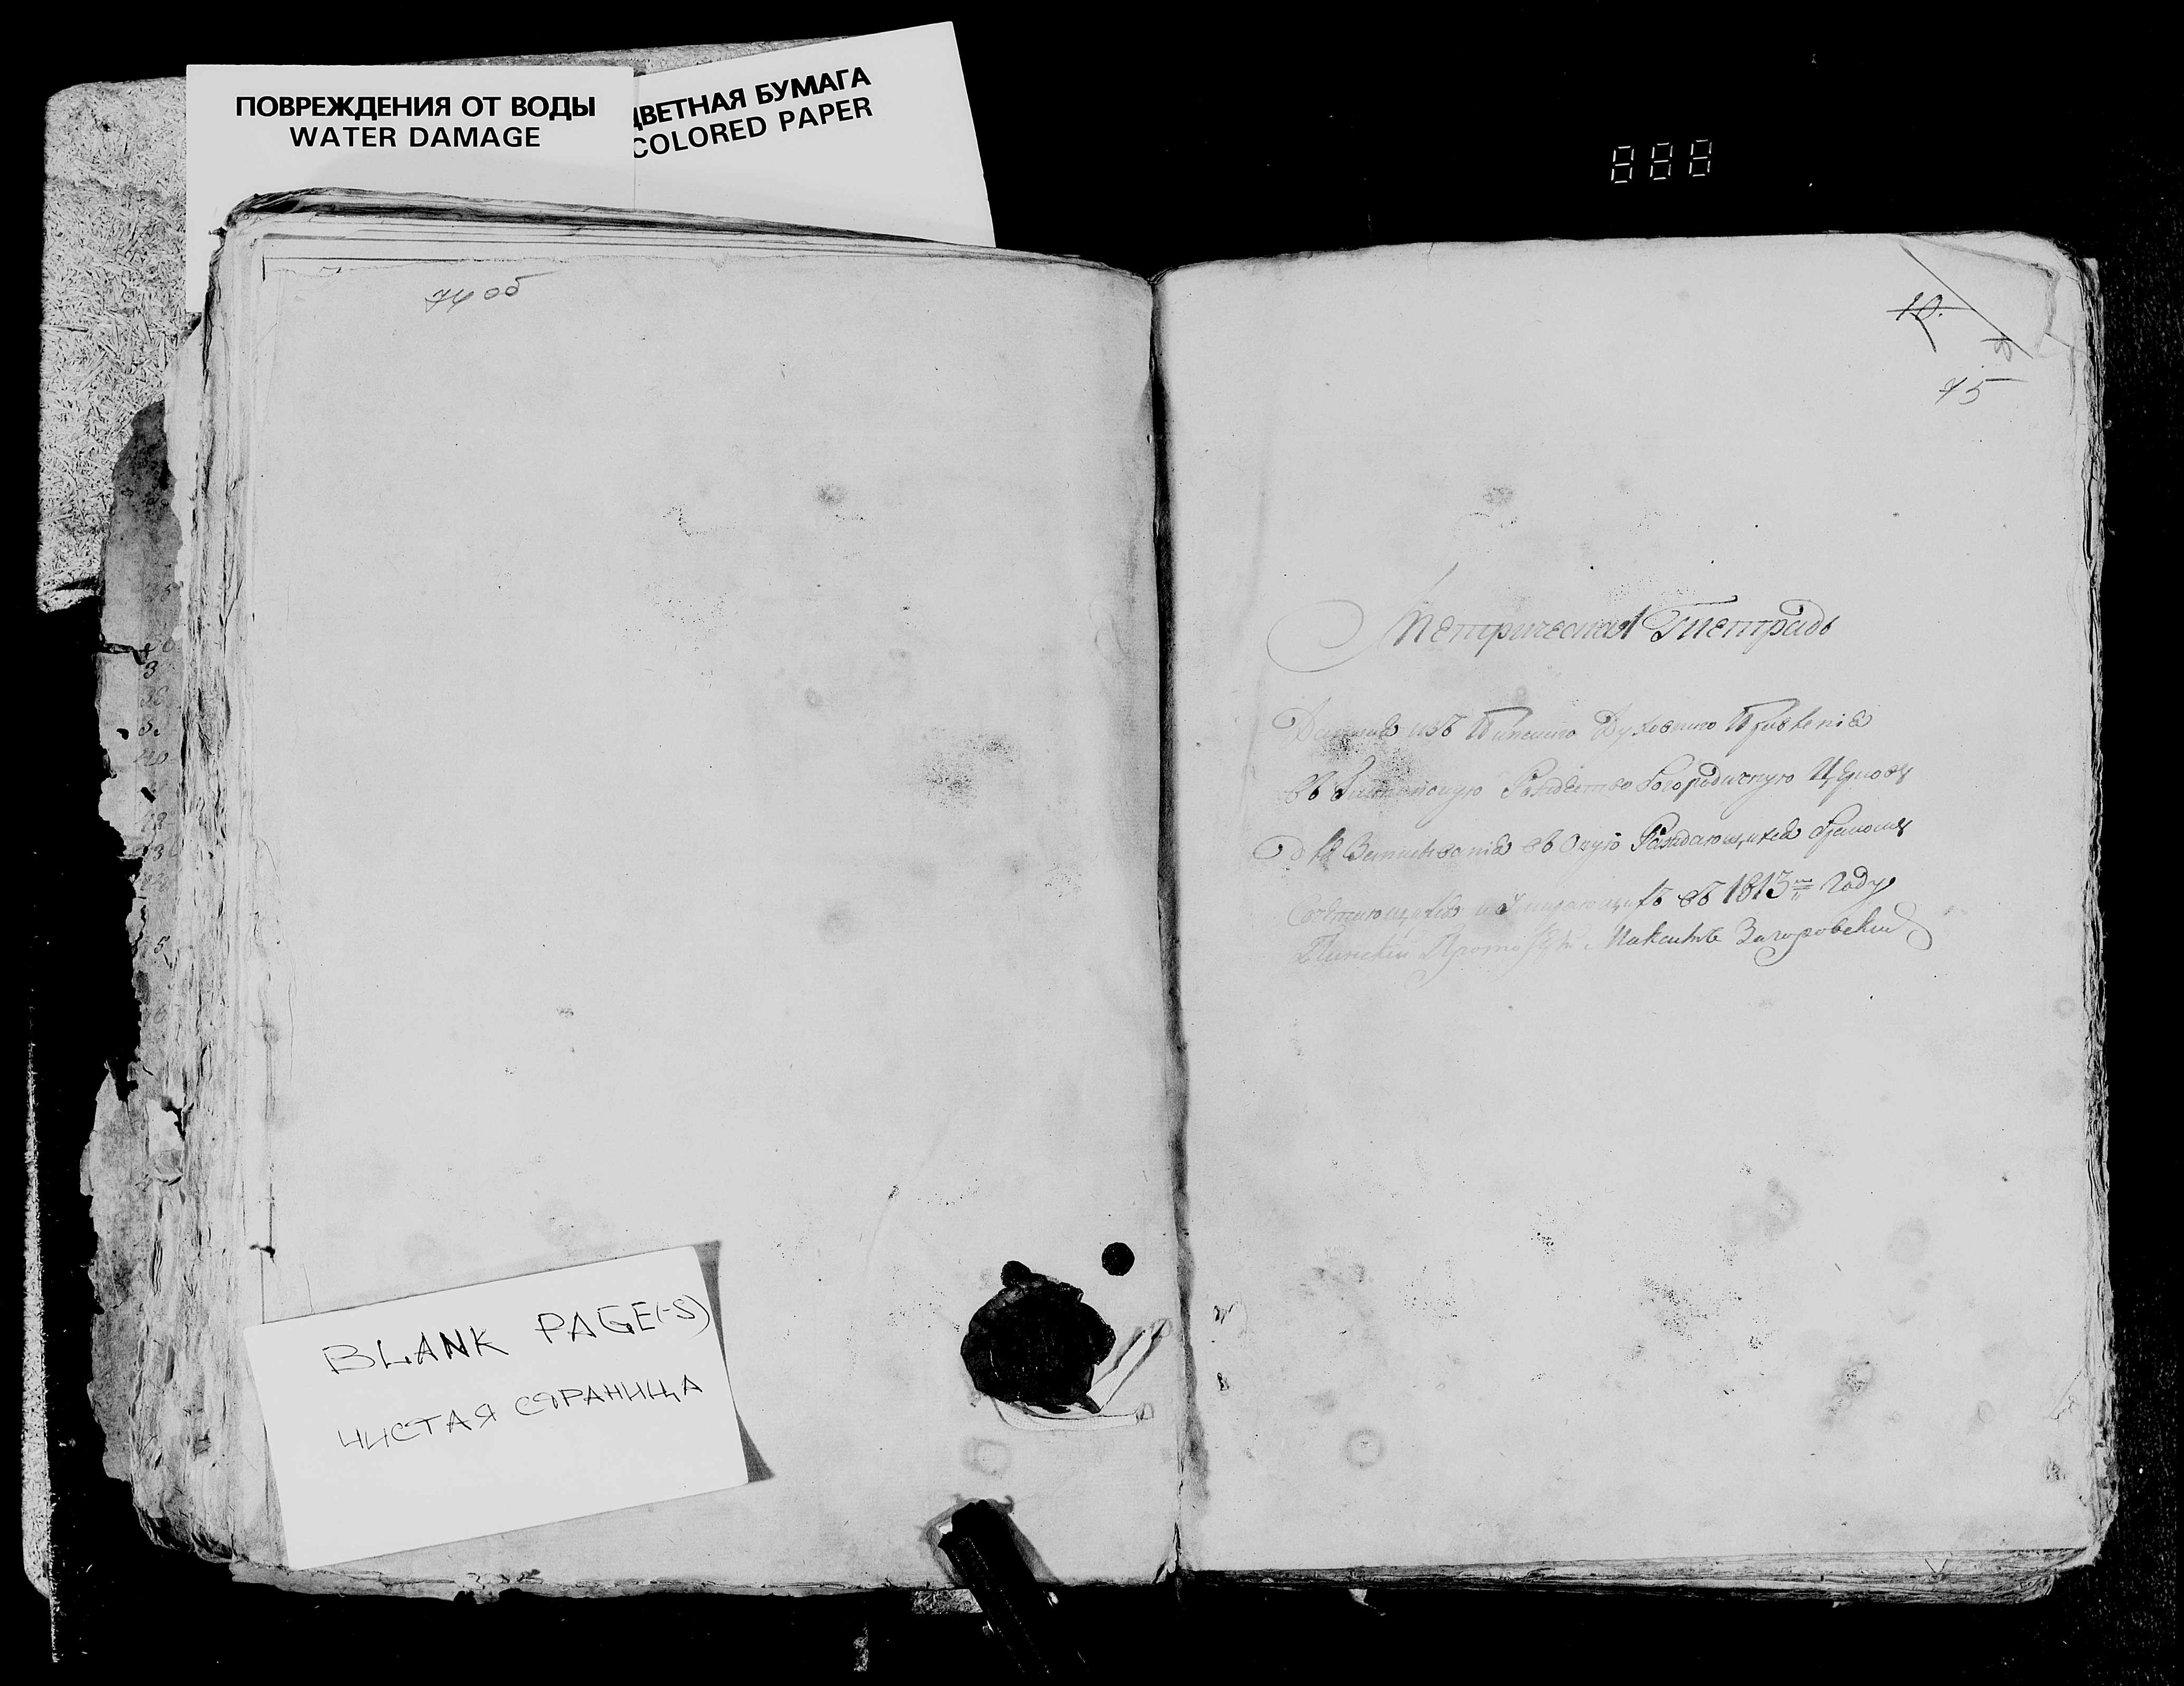 ПОВРЕЖДЕНИЯ ОТ ВОДЫ
WATER DAMAGE
ЦВЕТНАЯ БУМАГА
COLORED PAPER
888
74 об
10.
75
Метрическая Тетрадь
Данная изъ Пинскаго Духовнаго Правленія
въ Рождество Богородичную Церковь
для Записыванія въ оную Раждающихся Бракомъ
Сочетающихся и Умирающихъ въ 1813 м Году
Пинскій Максимъ Загоровскій
BLANK PAGE(-S)
ЧИСТАЯ СТРАНИЦА